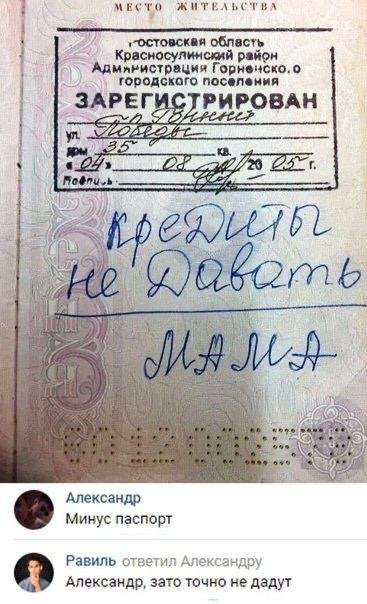 МЕСТО ЖИТЕЛЬСТВА
остовская область
Красносулинский район
Администрация Горненско.о
городского поселения
ЗАРЕГИСТРИРОВАН
п. Горный
ул. Победы
дом 35 кв.
«04» 08 2005 г.
Подпись
кредиты
не давать
МАМА
Александр
Минус паспорт
Равиль ответил Александру
Александр, зато точно не дадут